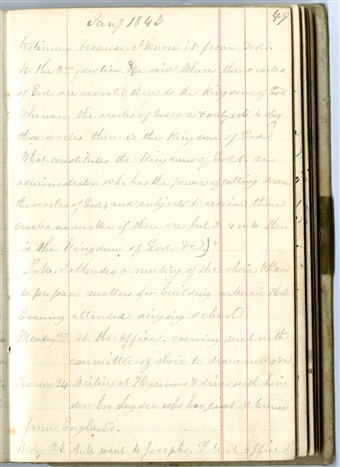 Jany 1843 49
testimony because I know it from God.
to the 2nd question He said Where the oracles
of God are revealed there is the kingdom of God
Wherever the oracles of God are & subjects to obey
those oracles there is the kingdom of God
What constitutes the kingdom of God? an
administrator who has the power of calling down
the oracles of God, and subjects to receive those
oracles no matter if there are but 3, 4 or 6 there
is the kingdom of God &c
P.M. I attended a meeting of the choir &
to prepare matters for building a Music Hall
Evening attended singing school
Monday 23 At the Office. evening met with
committee of choir to draw
Tuesday 24 Writing at & dined with him
Snyder who has just returned
from England.
Wedy 25 A.M. went to Josephs. P.M. at office